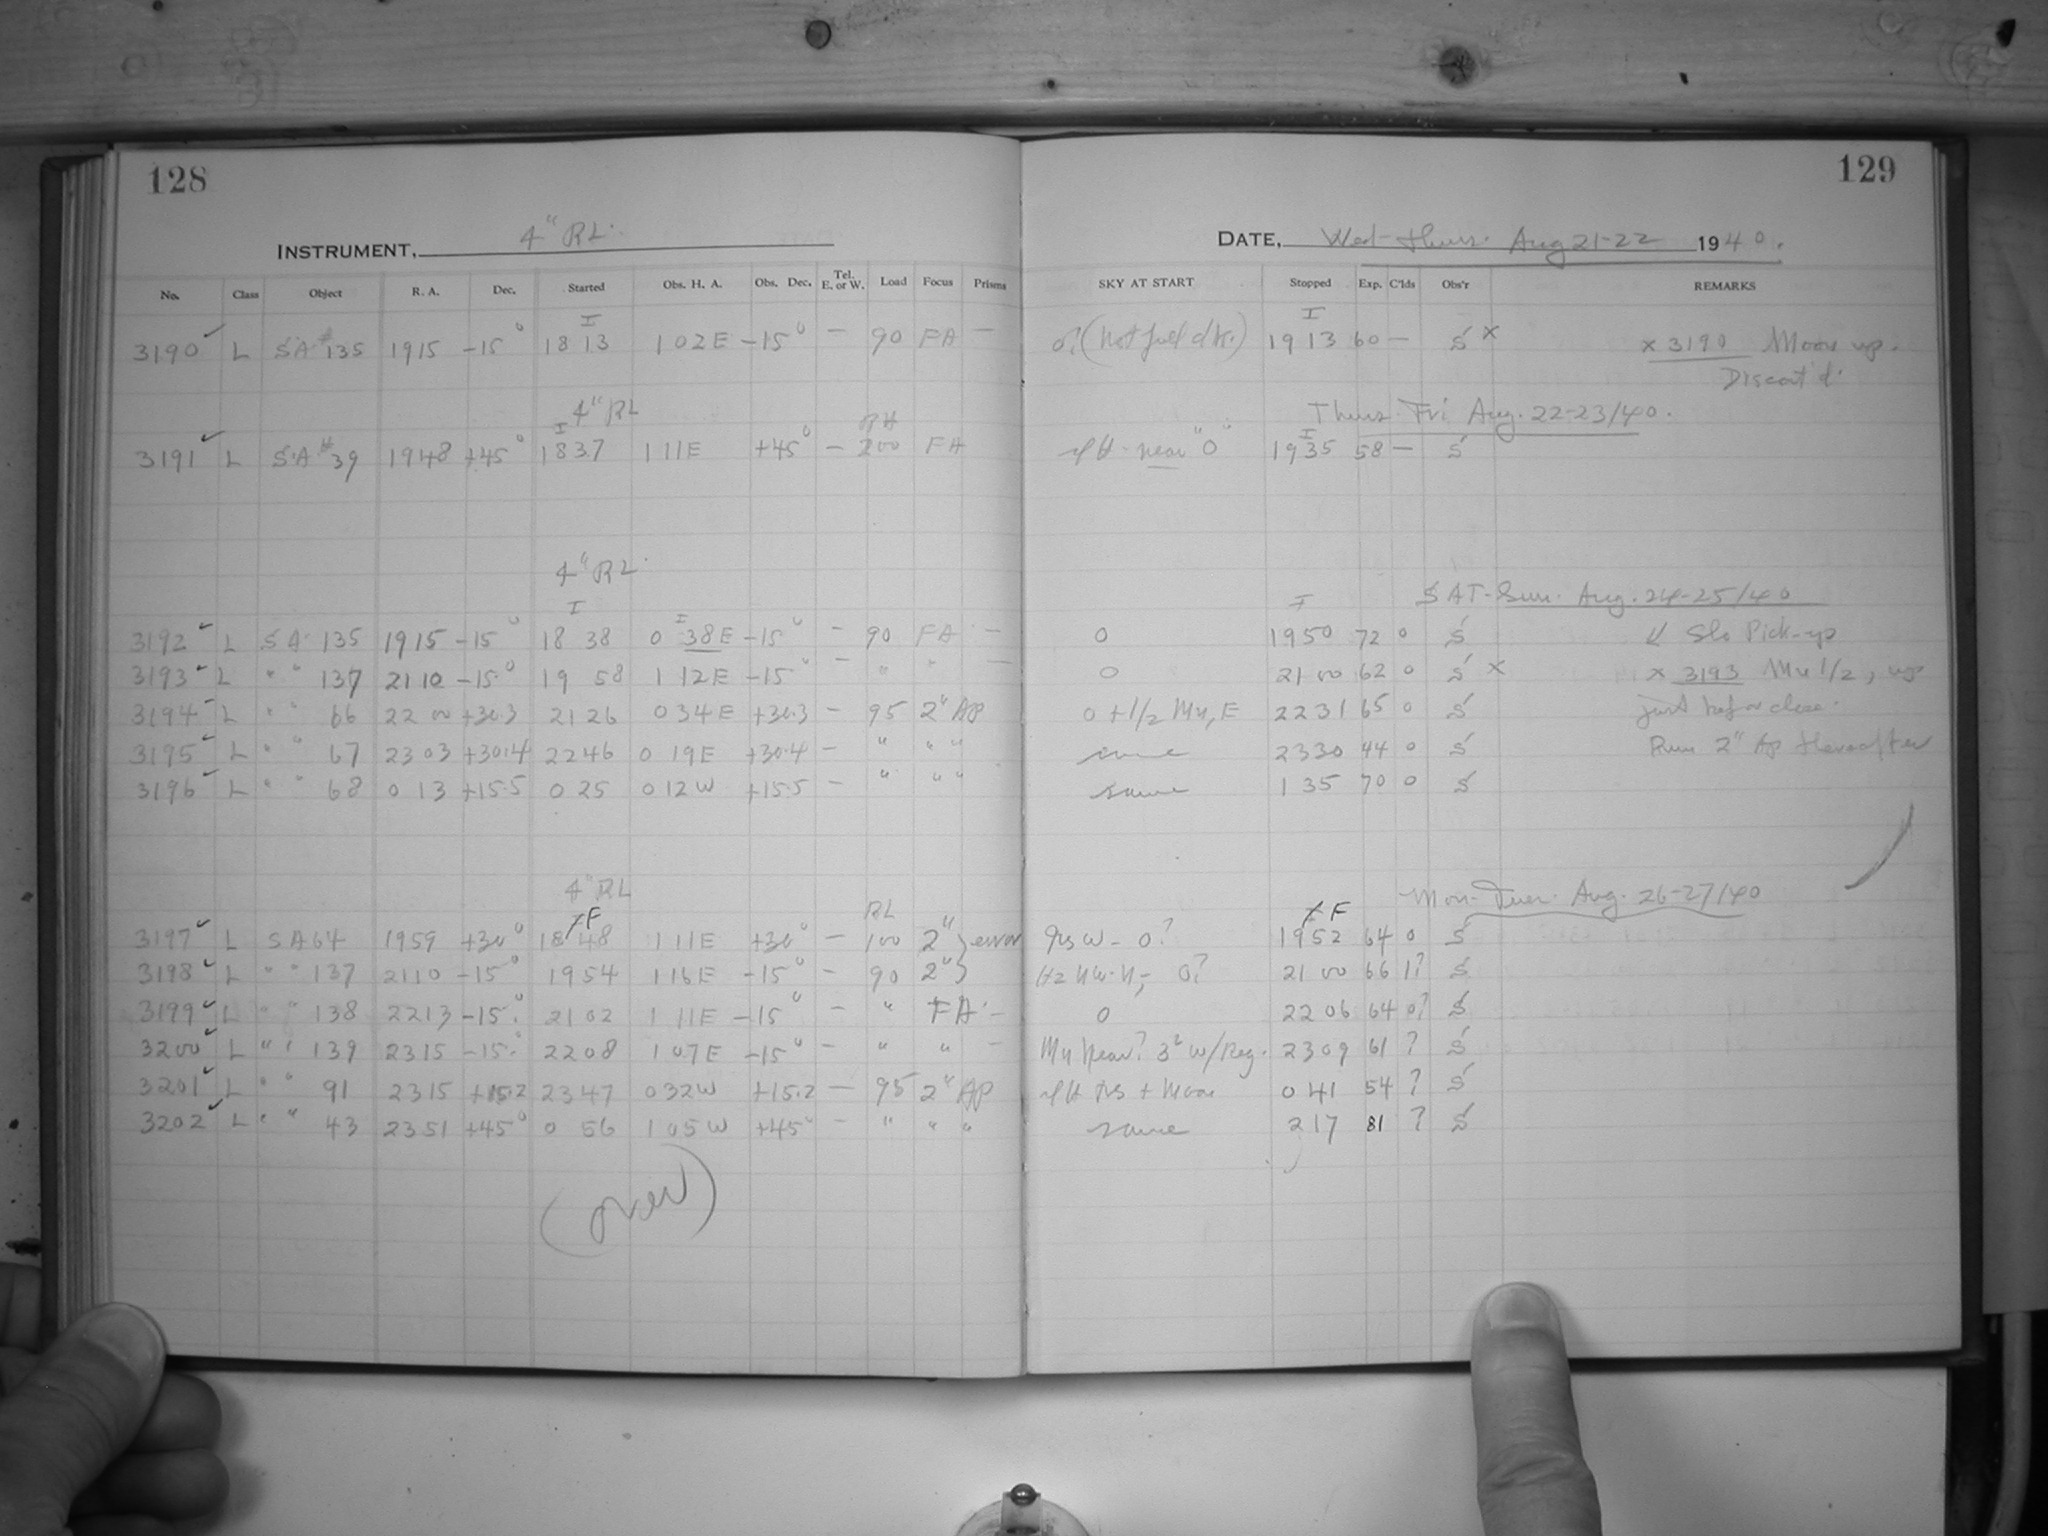 128
INSTRUMENT, 4" RL.
No. Class Object R. A. Dec. Started Obs. H. A. Obs. Dec. Tel. E. or W. Load Focus Prisms
I
3190 ✓ L SA # 135 1915 -15° 1813 1 02E -15° - 90 FA -
4" RL
I RH
3191 ✓ L SA # 39 1948 +45° 1837 1 11E +45° - 200 FA
4" RL.
I I
3192 ✓ L SA 135 1915 -15° 18 38 0 38E -15° - 90 FA -
3193 ✓ L " " 137 2110 -15° 19 58 1 12E -15° - " " -
3194 ✓ L " " 66 22 00 +30.3 2126 0 34E +30.3 - 95 2" Ap
3195 ✓ L " " 67 2303 +30.4 2246 0 19E +30.4 - " " "
3196 ✓ L " " 68 0 13 +15.5 0 25 0 12W +15.5 - " " "
4" RL
F RL
3197 ✓ L SA 64 1959 +30° 18 48 1 11E +30° - 100 2" } error
3198 ✓ L " " 137 2110 -15° 1954 1 16E -15° - 90 2" }
3199 ✓ L " " 138 2213 -15° 2102 1 11E -15° - " FA -
3200 ✓ L " " 139 2315 -15° 2208 1 07E -15° - " " -
3201 ✓ L " " 91 2315 +15.2 2347 0 32W +15.2 - 95 2" Ap
3202 ✓ L " " 43 2351 +45° 0 56 1 05W +45° - " " "
(over)
129
DATE, Wed-Thurs. Aug 21-22 1940.
SKY AT START Stopped Exp. C'lds Obs'r REMARKS
I
(Not full dk.) 1913 60 - S x x 3190 Moon up.
Discont'd.
Thurs-Fri Aug. 22-23/40.
I
near "0" 1935 58 - S
SAT-Sun. Aug. 24-25/40
I
0 1950 72 0 S ↙ Slo Pick-up
0 21 00 62 0 S x x 3193 Mn 1/2, up
0 + 1/2 Mn, E 2231 65 0 S just before close.
same 2330 44 0 S Run 2" Ap thereafter
same 1 35 70 0 S
Mon-Tues. Aug. 26-27/40
F
W - 0? 1952 64 0 S
Hz NW-N, 0? 21 00 66 1? S
0 2206 64 0? S
Mn near? 3° w/Reg. 2309 61 ? S
+ Moon 0 41 54 ? S
same 2 17 81 ? S